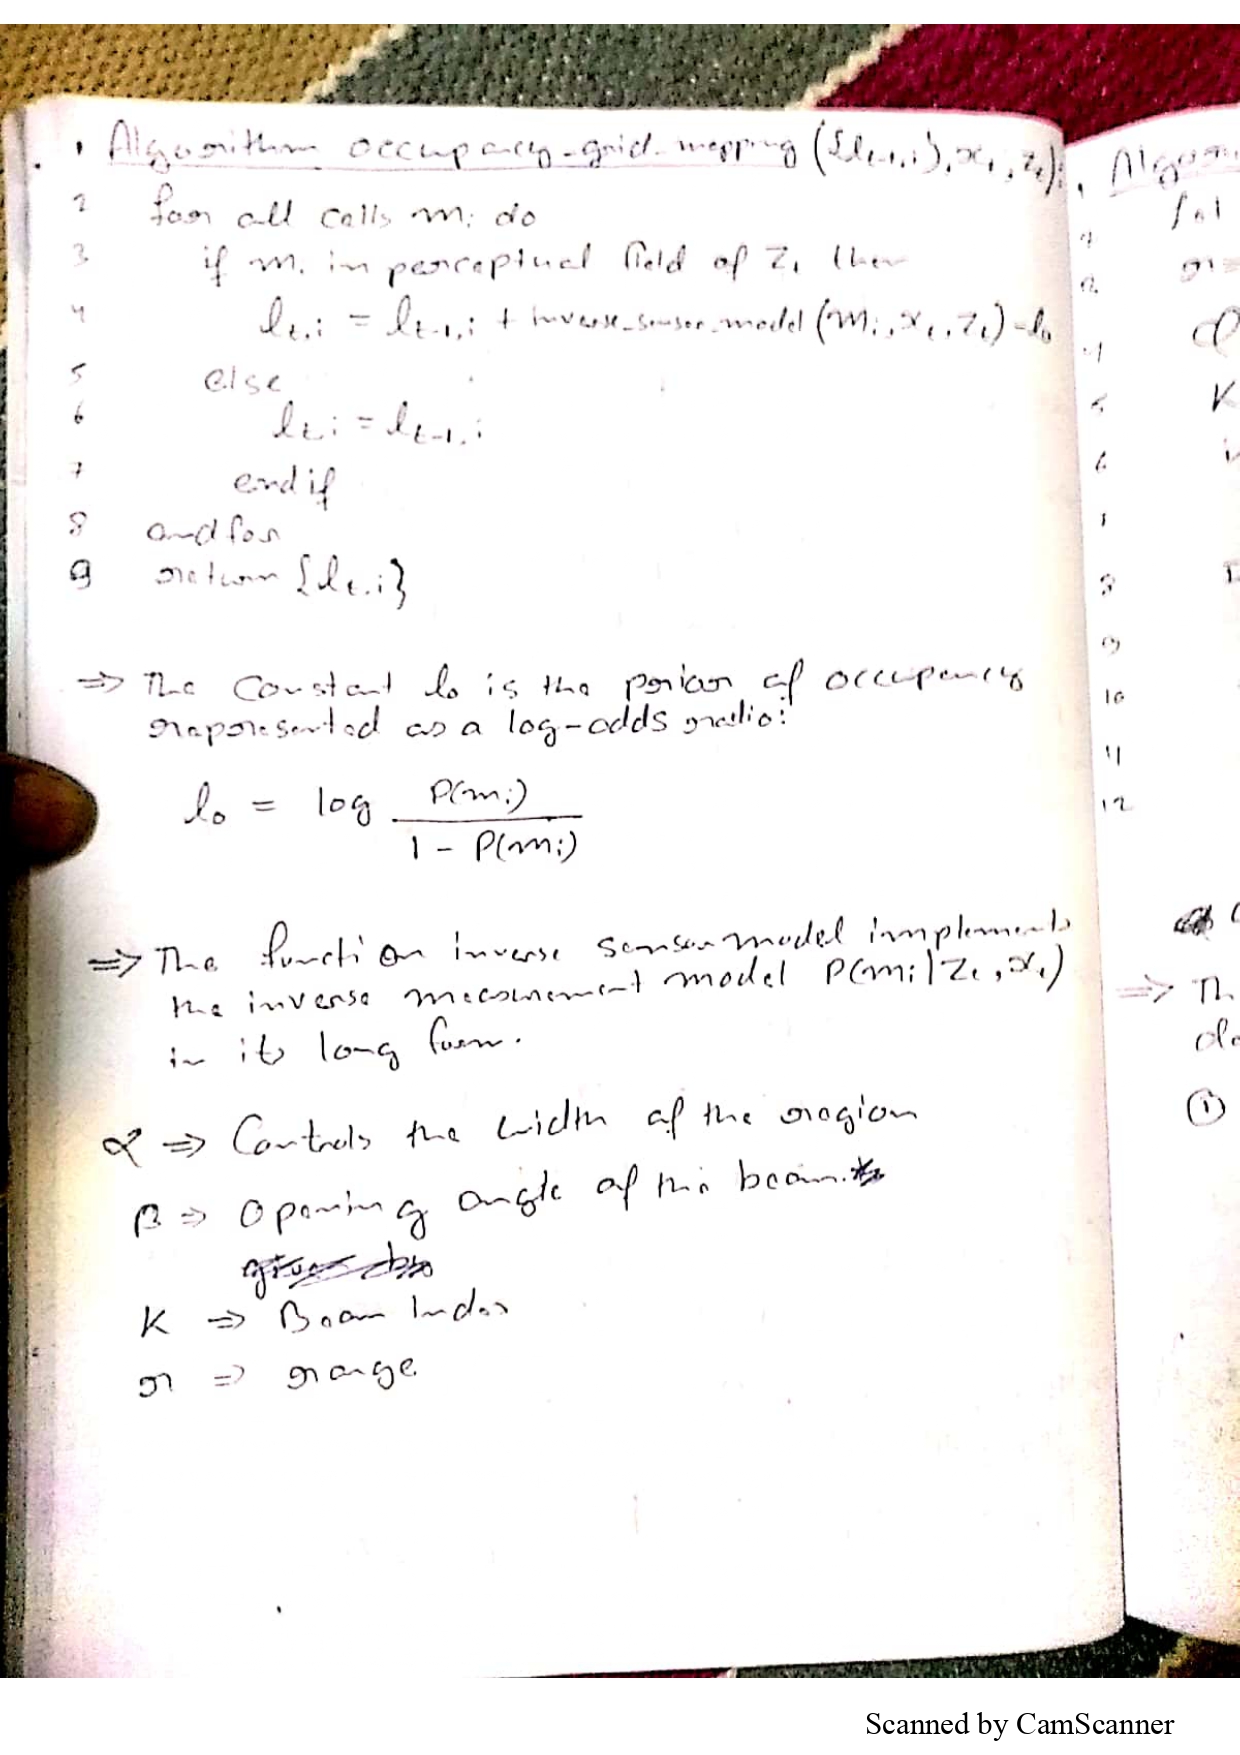 1 Algorithm occupancy-grid-mapping ({l_t-1,i}, x_t, z_t):
2 for all cells m_i do
3 if m_i in perceptual field of z_t then
4 l_t,i = l_t-1,i + inverse_sensor_model (m_i, x_t, z_t) - l_0
5 else
6 l_t,i = l_t-1,i
7 endif
8 endfor
9 return {l_t,i}
⇒ The constant l_0 is the prior of occupancy
represented as a log-odds ratio:
l_0 = log P(m_i)
1 - P(m_i)
⇒ The function inverse sensor model implements
the inverse measurement model P(m_i | z_t, x_t)
in its long form.
α ⇒ Controls the width of the region
β ⇒ Opening angle of the beam.
K ⇒ Beam Index
r ⇒ range
2
3
4 φ
5 K
6
7
8
9
10
11
12
⇒ Th
①
Scanned by CamScanner